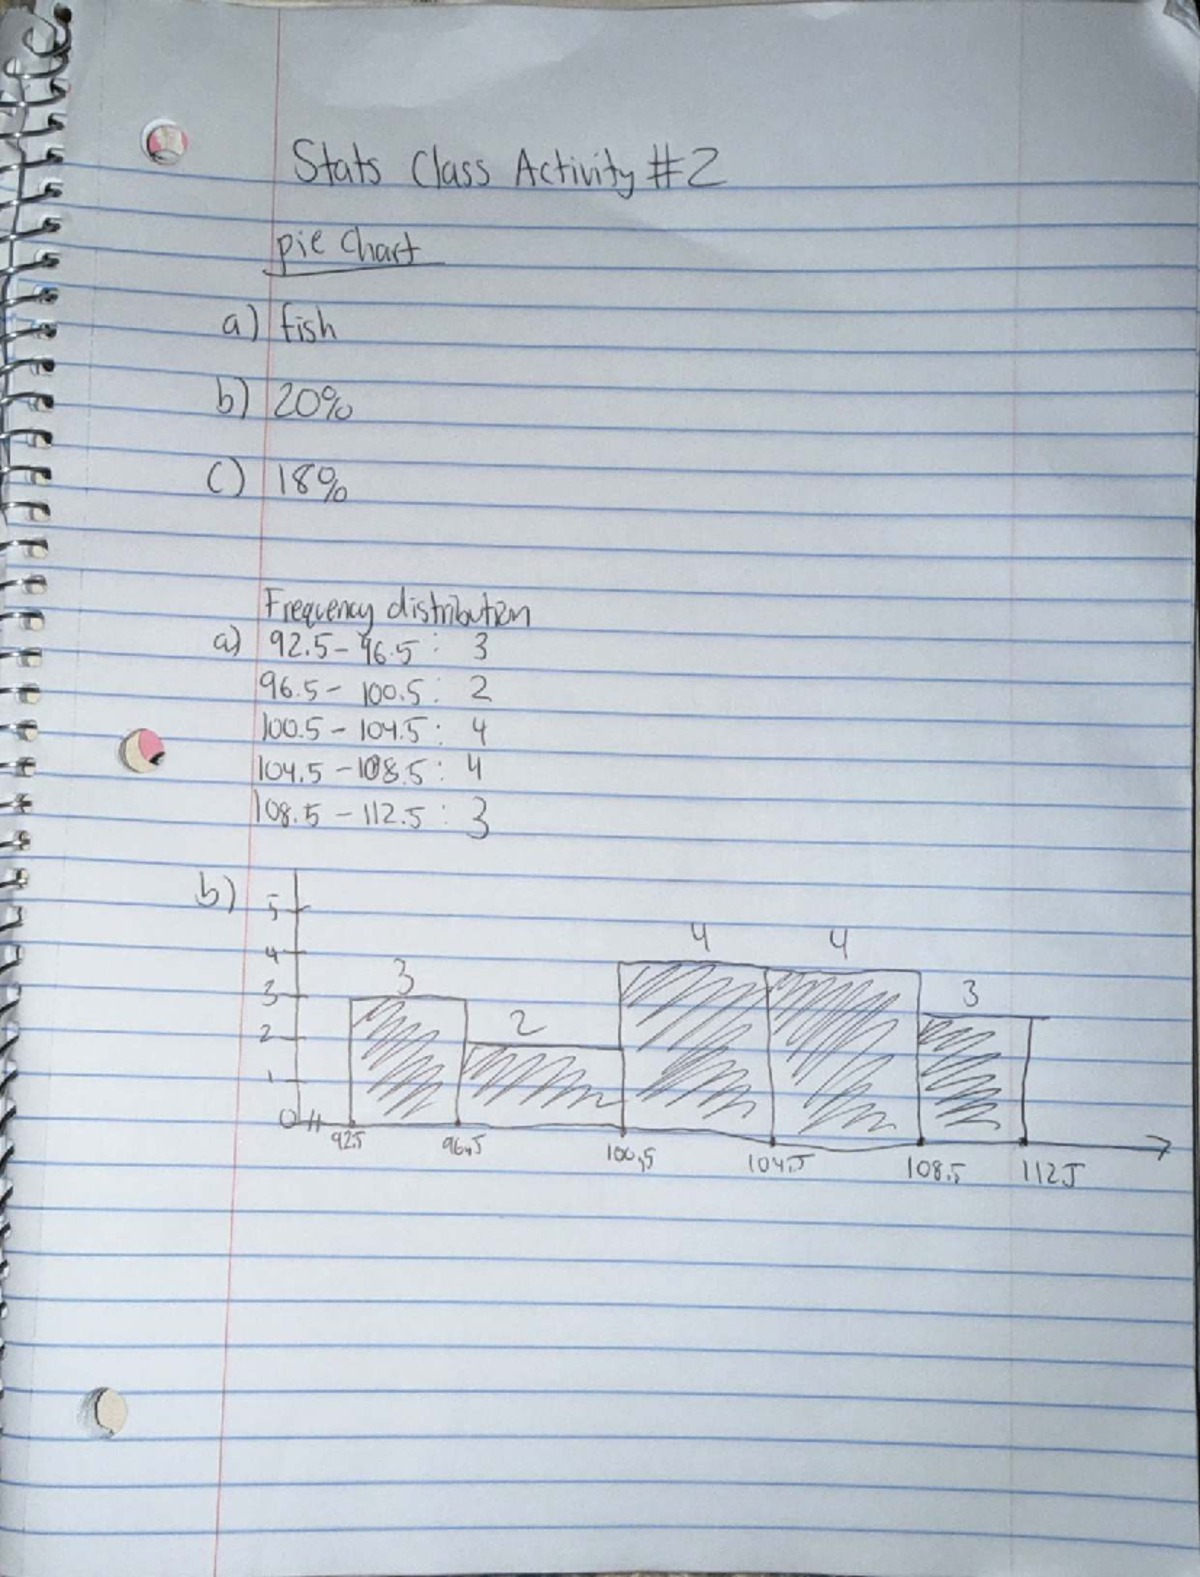 Stats Class Activity #2
pie Chart
a) fish
b) 20%
c) 18%
Frequency distribution
a) 92.5 - 96.5 : 3
96.5 - 100.5 : 2
100.5 - 104.5 : 4
104.5 - 108.5 : 4
108.5 - 112.5 : 3
b)
5
4
3
2
1
0
3
2
4
4
3
92.5 96.5 100.5 104.5 108.5 112.5